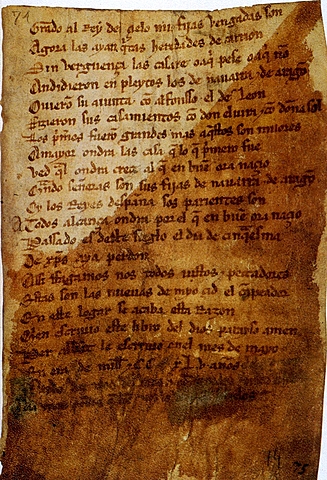 74
Grado al Rey del çielo mis fijas vengadas son
Agora las ayan q̃tas heredades de carrion
Sin verguença las casare o aq̃ pese o aq̃ nõ
Andidieron en pleytos los de nauarra ⁊ de aragõ
Ouieron su aiunta cõ alfonsso el de leon
Fizieron sus casamientos cõ don eluira ⁊ cõ doña sol
Los p̃meros fuerõ grandes mas aq̃stos son mijores
A mayor ondra las casa q̃ lo q̃ p̃mero fue
Ved q̃l ondra creçe al q̃ en buẽ ora naçio
Quãdo señoras son sus fijas de nauarra ⁊ de aragõ
Oy los Reyes despaña sos parientes son
A Todos alcança ondra por el q̃ en buẽ ora naçio
Passado es deste sieglo el dia de cinq̃esma
De xp̃s aya perdon
Assi ffagamos nos todos iustos ⁊ peccadores
Estas son las nueuas de myo çid el cãpeador
En este logar se acaba esta Razon
Quien escriuio este libro del dios parayso amen
Per abbat le escriuio en el mes de mayo
En era de mill ⁊ CC XLV años
74
75